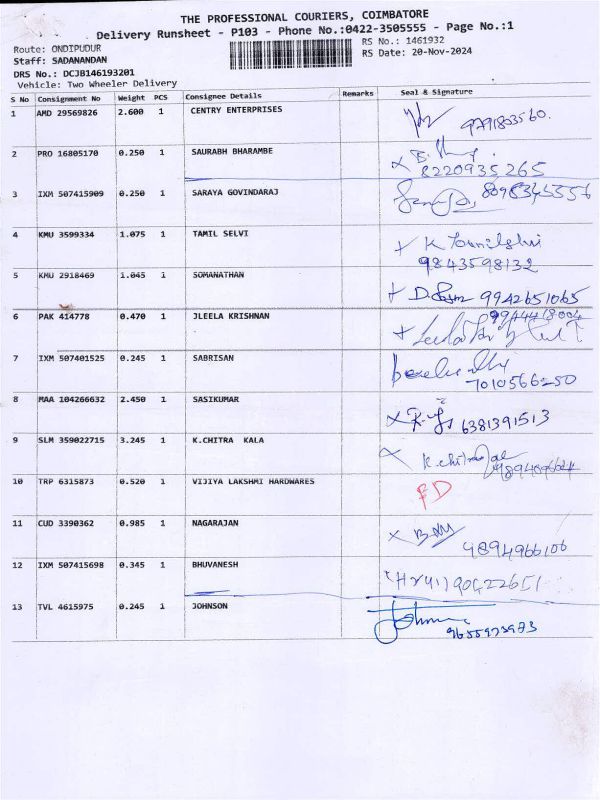 THE PROFESSIONAL COURIERS, COIMBATORE
Delivery Runsheet - P103 - Phone No.:0422-3505555 - Page No.:1
Route: ONDIPUDUR RS No.: 1461932
Staff: SADANANDAN RS Date: 20-Nov-2024
DRS No.: DCJB146193201
Vehicle: Two Wheeler Delivery
S No Consignment No Weight PCS Consignee Details Remarks Seal & Signature
1 AMD 29569826 2.600 1 CENTRY ENTERPRISES 9791803560.
2 PRO 16805170 0.250 1 SAURABH BHARAMBE
8220935265
3 IXM 507415909 0.250 1 SARAYA GOVINDARAJ 8098345356
4 KMU 3599334 1.075 1 TAMIL SELVI
9843598132
5 KMU 2918469 1.045 1 SOMANATHAN 9942651065
6 PAK 414778 0.470 1 JLEELA KRISHNAN
7 IXM 507401525 0.245 1 SABRISAN
7010566250
8 MAA 104266632 2.450 1 SASIKUMAR 6381391513
9 SLM 359022715 3.245 1 K.CHITRA KALA
10 TRP 6315873 0.520 1 VIJIYA LAKSHMI HARDWARES
11 CUD 3390362 0.985 1 NAGARAJAN
9894966106
12 IXM 507415698 0.345 1 BHUVANESH
13 TVL 4615975 0.245 1 JOHNSON
9655973973